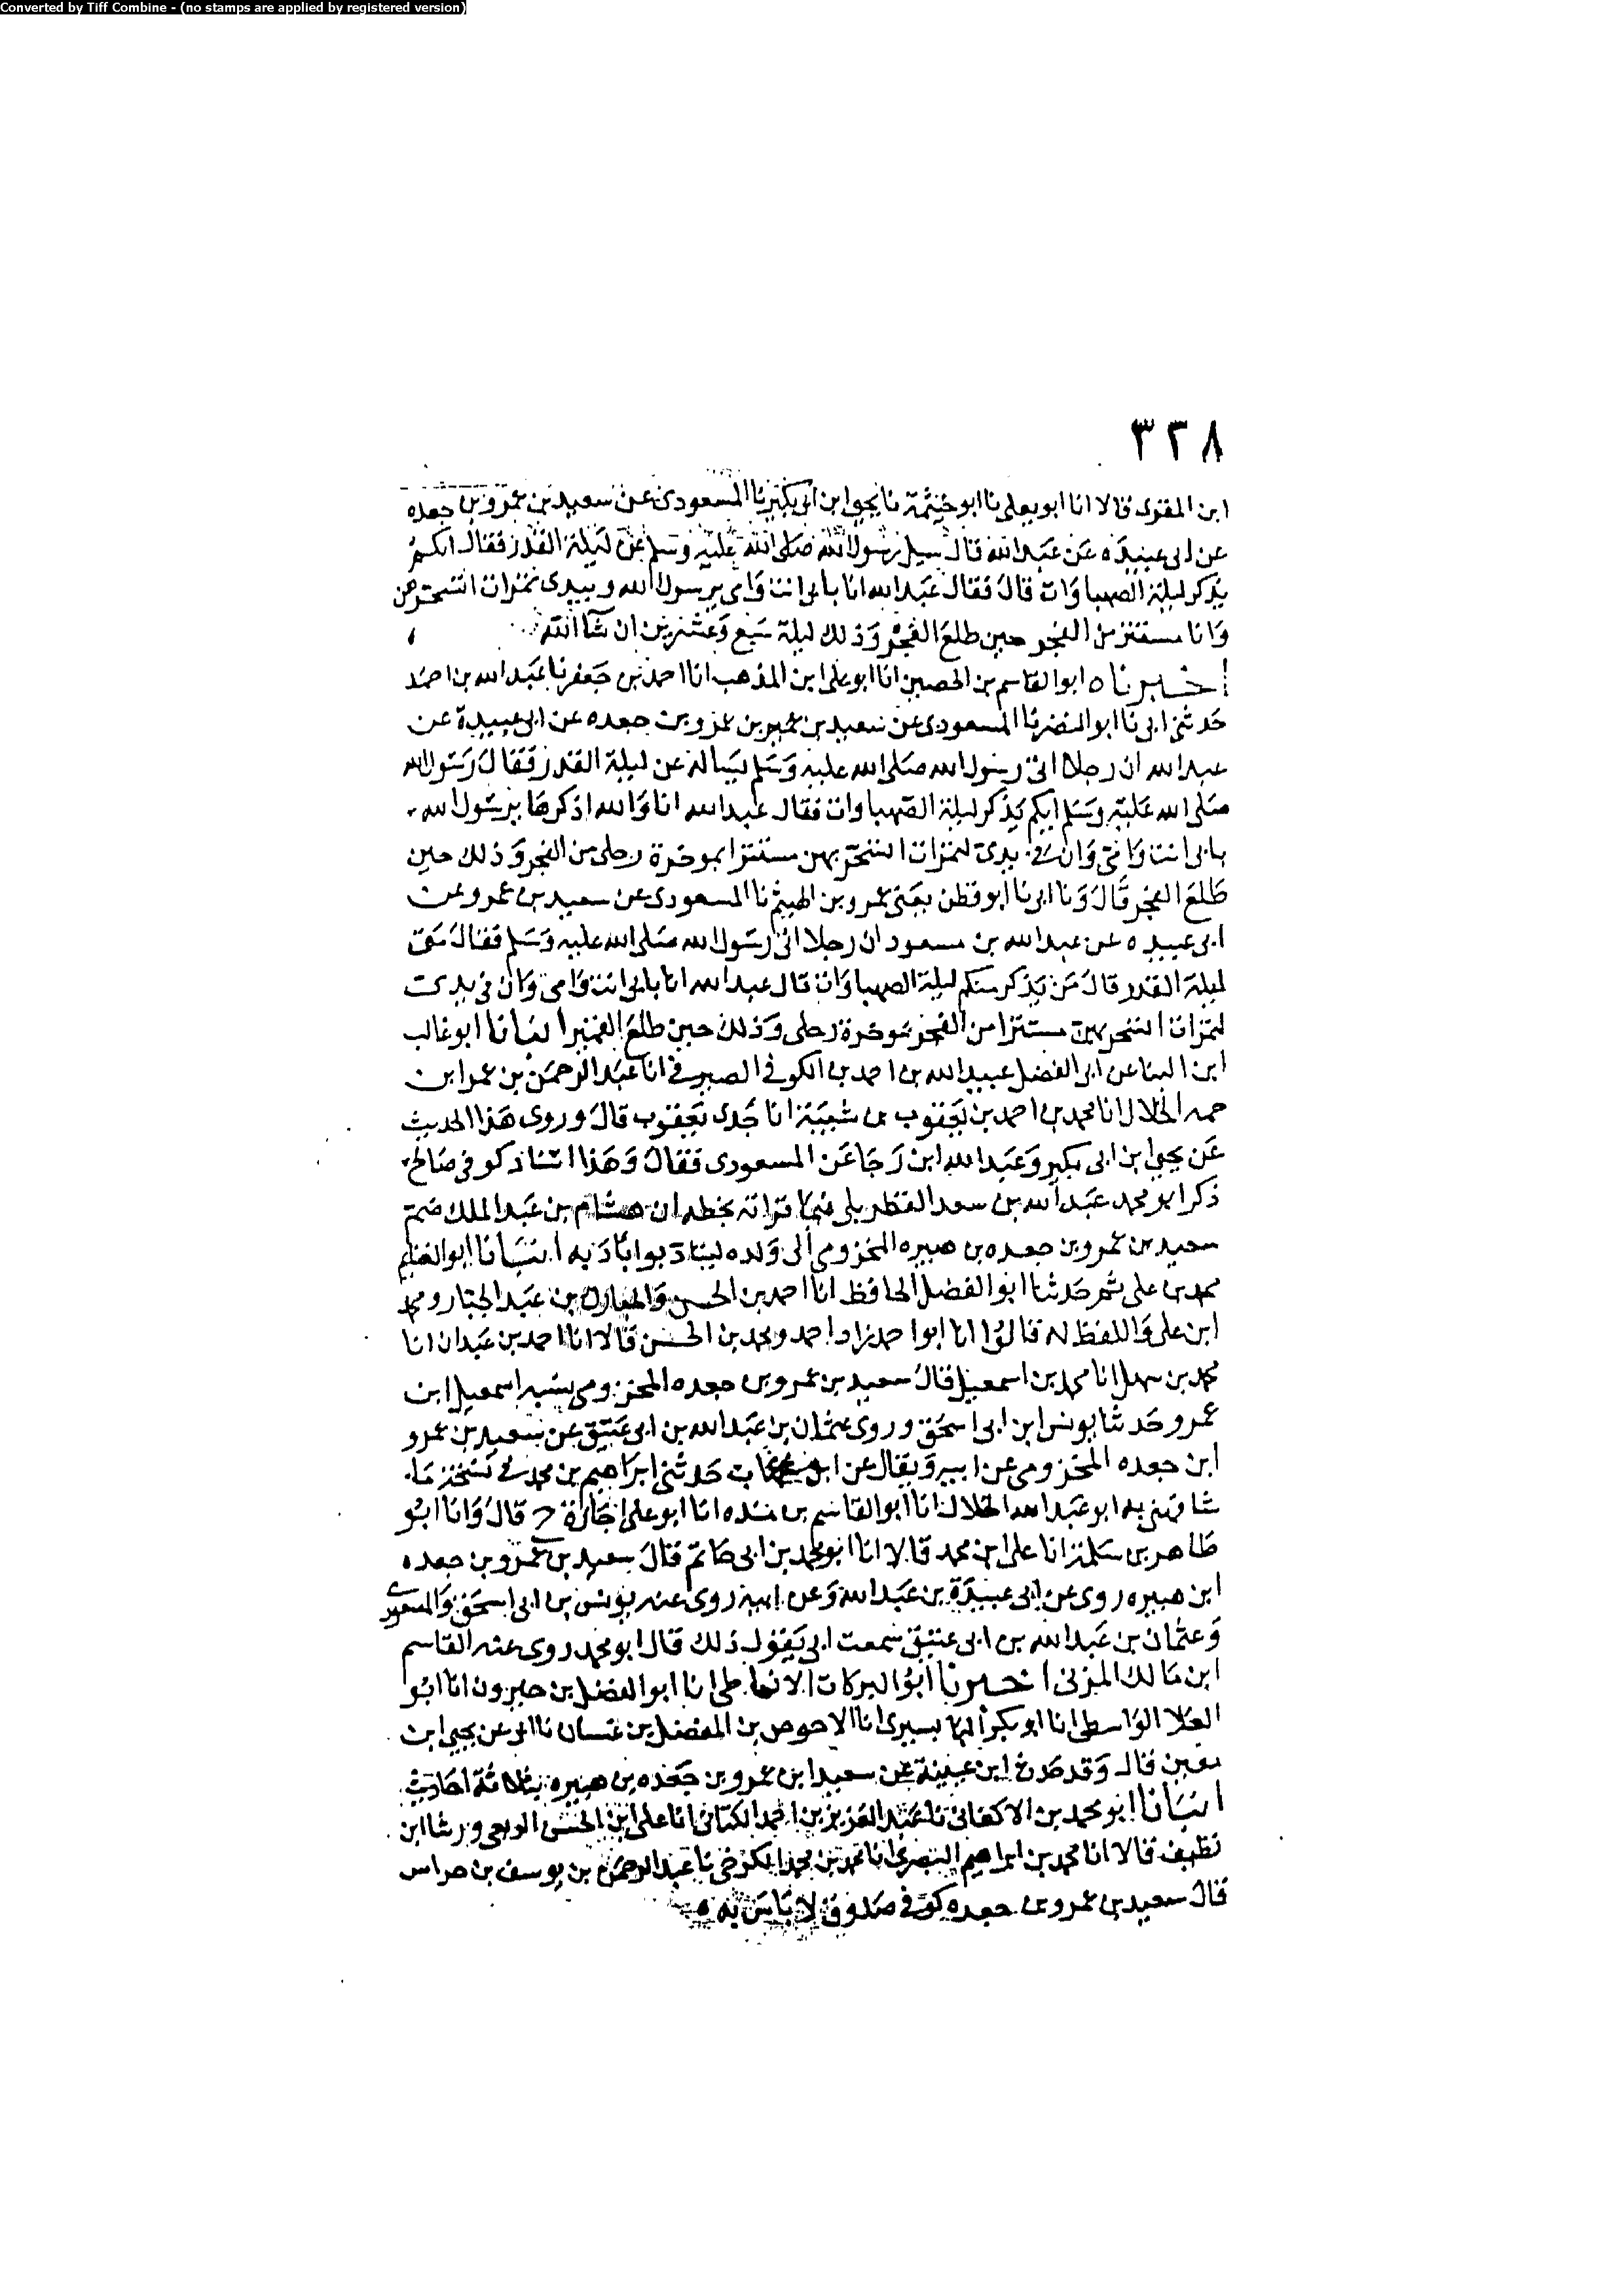 Converted by Tiff Combine - (no stamps are applied by registered version)
٣٢٨
ابن المقرى قالا انا ابو يعلى نا ابو خيثمة نا يحيى ابن ابى بكير نا المسعودى عن سعيد بن عمرو بن جعده
عن ابى عبيده عن عبد الله قال سيل رسول الله صلى الله عليه وسلم عن ليلة القدر فقال ايكم
يذكر ليلة الصهباوات قال فقال عبد الله انا بابى انت وامى يرسول الله وبيدى تمرات اتسحر بهن
وانا مستتر من الفجر حين طلع الفجر وذلك ليلة سبع وعشرين ان شا الله
اخبرناه ابو القاسم بن الحصين انا ابو على ابن المذهب انا احمد بن جعفر نا عبد الله بن احمد
حدثنى ابى نا ابو النضر نا المسعودى عن سعيد بن عمرو بن جعده عن ابى عبيدة عن
عبد الله ان رجلا اتى رسول الله صلى الله عليه وسلم يساله عن ليلة القدر فقال رسول الله
صلى الله عليه وسلم ايكم يذكر ليلة الصهباوات فقال عبد الله انا والله اذكرها يرسول الله
بابى انت وامى وان فى يدى لتمرات اتسحر بهن مستترا بموخرة رحلى من الفجر وذلك حين
طلع الفجر قال ونا ابى نا ابو قطن يعنى عمرو بن الهيثم نا المسعودى عن سعيد بن عمرو عن
ابى عبيده عن عبد الله بن مسعود ان رجلا اتى رسول الله صلى الله عليه وسلم فقال متى
ليلة القدر قال من يذكر منكم ليلة الصهباوات قال عبد الله انا بابى انت وامى وان فى يدى
لتمرات اتسحر بهن مستترا من الفجر بموخرة رحلى وذلك حين طلع القمير انبانا ابو غالب
ابن البنا عن ابى الفضل عبيد الله بن احمد بن الكوفى الصيرفى انا عبد الرحمن بن عمر ابن
حمه الخلال انا محمد بن احمد بن يعقوب بن شيبة انا جدى يعقوب قال وروى هذا الحديث
عن يحيى ابن ابى بكير وعبد الله ابن رجا عن المسعودى فقال وهذا اسناد كوفى صالح
ذكر ابو محمد عبد الله بن سعد القطربلى فيما قراته بخطه ان هشام بن عبد الملك ضم
سعيد بن عمرو بن جعده بن هبيره المخزومى الى ولده ليتادبوا بادبه انبانا ابو الغنايم
محمد بن على ثم حدثنا ابو الفضل الحافظ انا احمد بن الحسن والمبارك بن عبد الجبار ومحمد
ابن على واللفظ له قالوا انا ابو احمد زاد احمد ومحمد بن الحسن قالا انا احمد بن عبدان انا
محمد بن سهل انا محمد بن اسمعيل قال سعيد بن عمرو بن جعده المخزومى اسمعيل ابن
عمرو حدثنا يونس ابن ابى اسحق وروى عثمان بن عبد الله بن ابى عتيق عن سعيد بن عمرو
ابن جعده المخزومى عن ابيه ويقال عن ابن حدثنى ابراهيم بن محمد فى نسخة ما
شافهنى به ابو عبد الله الخلال انا ابو القاسم بن منده انا ابو على اجازة ح قال وانا ابو
طاهر بن سلمة انا على ابن محمد قالا انا ابو محمد بن ابى حاتم قال سعيد بن عمرو بن جعده
ابن هبيره روى عن ابى عبيدة بن عبد الله وعن ابيه روى عنه يونس بن ابى اسحق والمسعودى
وعثمان بن عبد الله بن ابى عتيق سمعت ابى يقول ذلك قال ابو محمد روى عنه القاسم
ابن مالك المزنى اخبرنا ابو البركات الانماطى انا ابو الفضل بن خيرون انا ابو
العلا الواسطى انا ابو بكر البابسيرى انا الاحوص بن المفضل بن غسان نا ابى عن يحيى ابن
معين قال وقد حدث ابن عيينة عن سعيد ابن عمرو بن جعده بن هبيره بثلاثة احاديث
انبانا ابو محمد بن الاكفانى نا عبد العزيز بن احمد الكتانى انا على ابن الحسن الربعى ورشا ابن
نظيف قالا انا محمد بن ابراهيم البصرى انا محمد بن محمد الكرخى نا عبد الرحمن بن يوسف بن خراس
قال سعيد بن عمرو بن جعده كوفى صدوق لا باس به